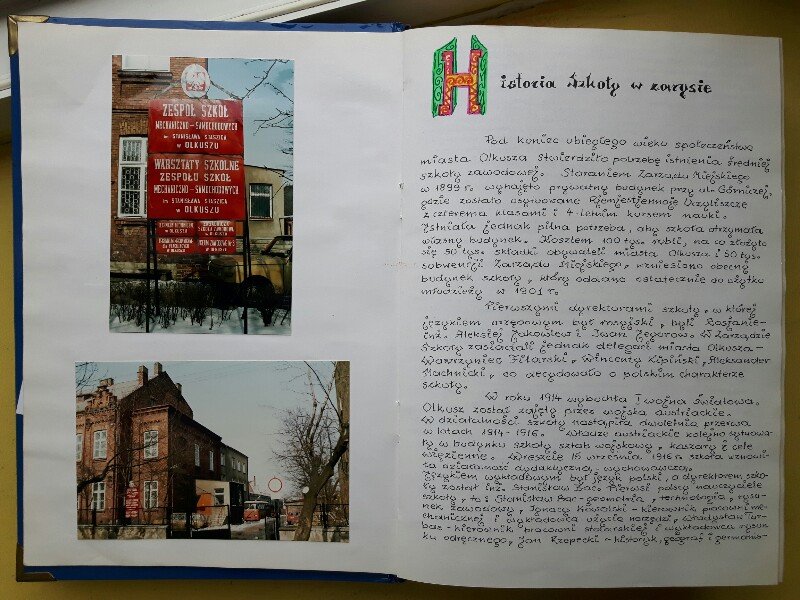 ZESPÓŁ SZKÓŁ
MECHANICZNO-SAMOCHODOWYCH
im. STANISŁAWA STASZICA
w OLKUSZU
WARSZTATY SZKOLNE
ZESPOŁU SZKÓŁ
MECHANICZNO-SAMOCHODOWYCH
im. STANISŁAWA STASZICA
w OLKUSZU
Historia Szkoły w zarysie
Pod koniec ubiegłego wieku społeczeństwo
miasta Olkusza stwierdziło potrzebę istnienia średniej
szkoły zawodowej. Staraniem Zarządu Miejskiego
w 1899 r. wynajęto prywatny budynek przy ul. Górniczej,
gdzie zostało usytuowane Riemiestjennoje Ucziliszcze
z czterema klasami i 4-letnim kursem nauki.
Istniała jednak pilna potrzeba, aby szkoła otrzymała
własny budynek. Kosztem 100 tys. rubli, na co złożyło
się 50 tys. składki obywateli miasta Olkusza i 50 tys.
subwencji Zarządu Miejskiego, wzniesiono obecny
budynek szkoły, który oddano ostatecznie do użytku
młodzieży w 1901 r.
Pierwszymi dyrektorami szkoły, w której
językiem urzędowym był rosyjski, byli Rosjanie-
inż. Aleksiej Jakowlew i Iwan Jegorow. W Zarządzie
Szkoły zasiadali jednak delegaci miasta Olkusza-
Wawrzyniec Filarski, Wincenty Kipiński, Aleksander
Machnicki, co decydowało o polskim charakterze
szkoły.
W roku 1914 wybuchła I wojna światowa.
Olkusz został zajęty przez wojska austriackie.
W działalności szkoły nastąpiła dwuletnia przerwa
w latach 1914-1916. Władze austriackie kolejno sytuowa-
ły w budynku szkoły sztab wojskowy, koszary i cele
więzienne. Wreszcie 15 września 1916 r. szkoła wznowi-
ła działalność dydaktyczną, wychowawczą.
Językiem wykładowym był język polski, a dyrektorem szko-
ły został inż. Stanisław Bac. Pierwsi polscy nauczyciele
szkoły, to: Stanisław Bac-geometria, technologia, rysu-
nek zawodowy, Ignacy Kowalski - kierownik pracowni me-
chanicznej i wykładowca użycia narzędzi, Władysław Tur-
bas-kierownik pracowni stolarskiej i wykładowca rysun-
ku odręcznego, Jan Rzepecki-historyk, geograf i germanis-